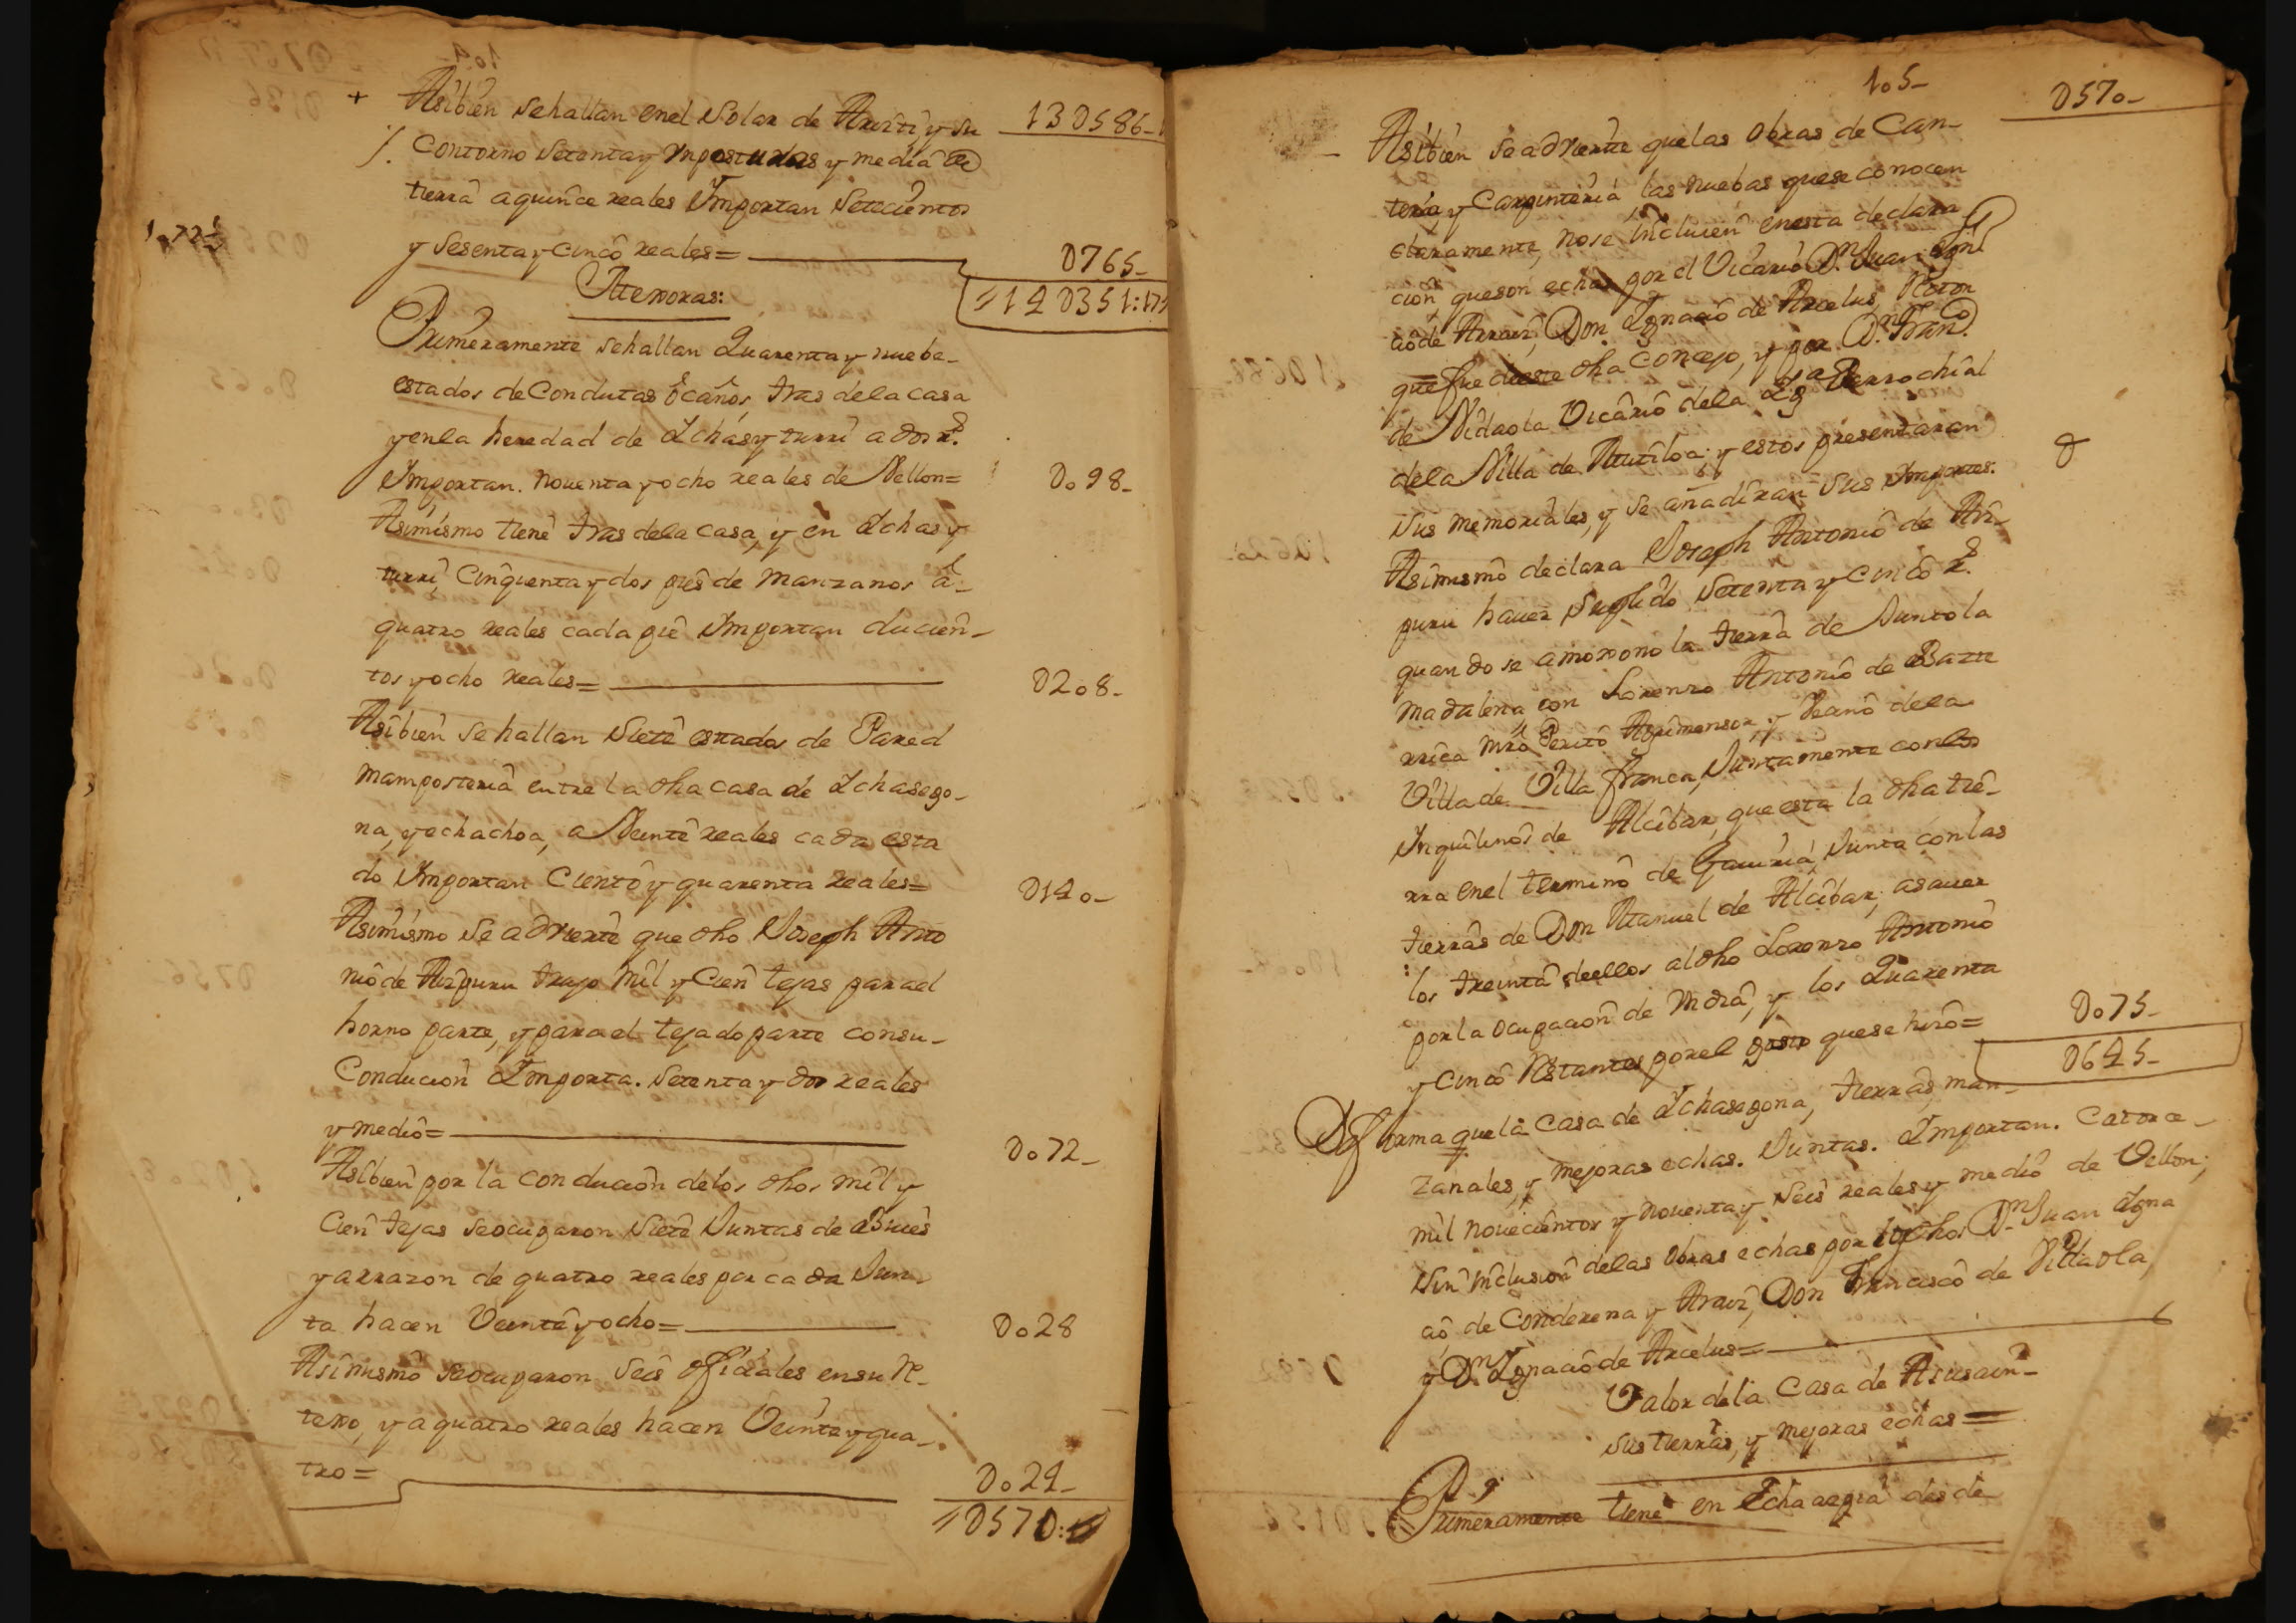 + Asibien se hallan en el Solar de Aruiti y su
130586-
/. Contorno Setenta y un posturas y media de
tierra a quince reales Importan Setecientos
y Sesenta y cinco reales=
0765-
140351:17
Mexoras:
Primeramente se hallan Quarenta y nuebe
estados de Condutas o caños, tras dela casa
y enla heredad de Echas y turri a dos rs.
Importan. noventa y ocho reales de Vellon=
Do98-
Asimismo tiene tras dela casa, y en Echas y
turri, Cinquenta y dos pies de manzanos a
quatro reales cada pie Importan ducien-
tos y ocho reales=
D208-
Asibien se hallan Siete estados de Pared
mamposteria entre la dha casa de Echasgo-
na, y echachoa, a Veinte reales cada esta
do Importan Ciento y quarenta reales=
D140-
Asimismo se advierte que dho Joseph Anto
nio de Aizpuru trajo mil y Cien tejas para el
horno parte, y para el tejado parte con su
Conducion Importa. Setenta y dos reales
y medio=
Do72-
Asibien por la conducion delos dhos mil y
Cien tejas se ocuparon Siete Juntas de Bues
y arrazon de quatro reales por cada Jun-
ta hacen Veinte y ocho=
Do28
Asimismo se ocuparon Seis oficiales en su Re-
texo, y a quatro reales hacen Veinte y qua-
tro=
Do24-
D570:
105-
D570-
Asibien se advierte que las obras de Can-
teria, y Carpinteria, las nuebas que se conocen
claramente, no se incluien enesta declara
cion, que son echas por el Vicario Dn. Juan Igna
cio de Arrauz, Don Ignacio de Arcelus, Retor
que fue deeste dho Concejo, y por Dn. Franco.
de Vidaola Vicario dela Yga Parrochial
dela Villa de Mutiloa; y estos presentaran
sus memoriales, y se añadiran sus Importes.
Asimismo declara Joseph Antonio de Aiz-
puru haver Suplido Setenta y cinco rs.
quando se amoxono la tierra de Junto la
madalena con Lorenzo Antonio de Bazte
rrica Mro Perito Agrimensor, y Vecino dela
Villa de Villa franca, Juntamente con los
Inquilinos de Alcibar, que esta la dha tie-
rra enel termino de Gauiria, Junta con las
tierras de Don Manuel de Alcibar, a sauer
los treinta deellos al dho Lorenzo Antonio
por la ocupacion de un dia, y los Quarenta
y cinco restantes por el gasto que se hizo=
Do75-
D645-
De forma que la Casa de Echasgona, tierras, man-
zanales, y mejoras echas. Juntas. Importan. Catorce
mil novecientos y noventa y Seis reales y medio de Vellon;
Sin inclusion delas obras echas por los dhos Dn. Juan Igna
cio de Conderena y Arauz, Don Francisco de Vidaola,
y Dn. Ignacio de Arcelus=
Valor dela Casa de Asusain-
sus tierras, y mejoras echas=
Primeramente tiene en Echaaegia desde